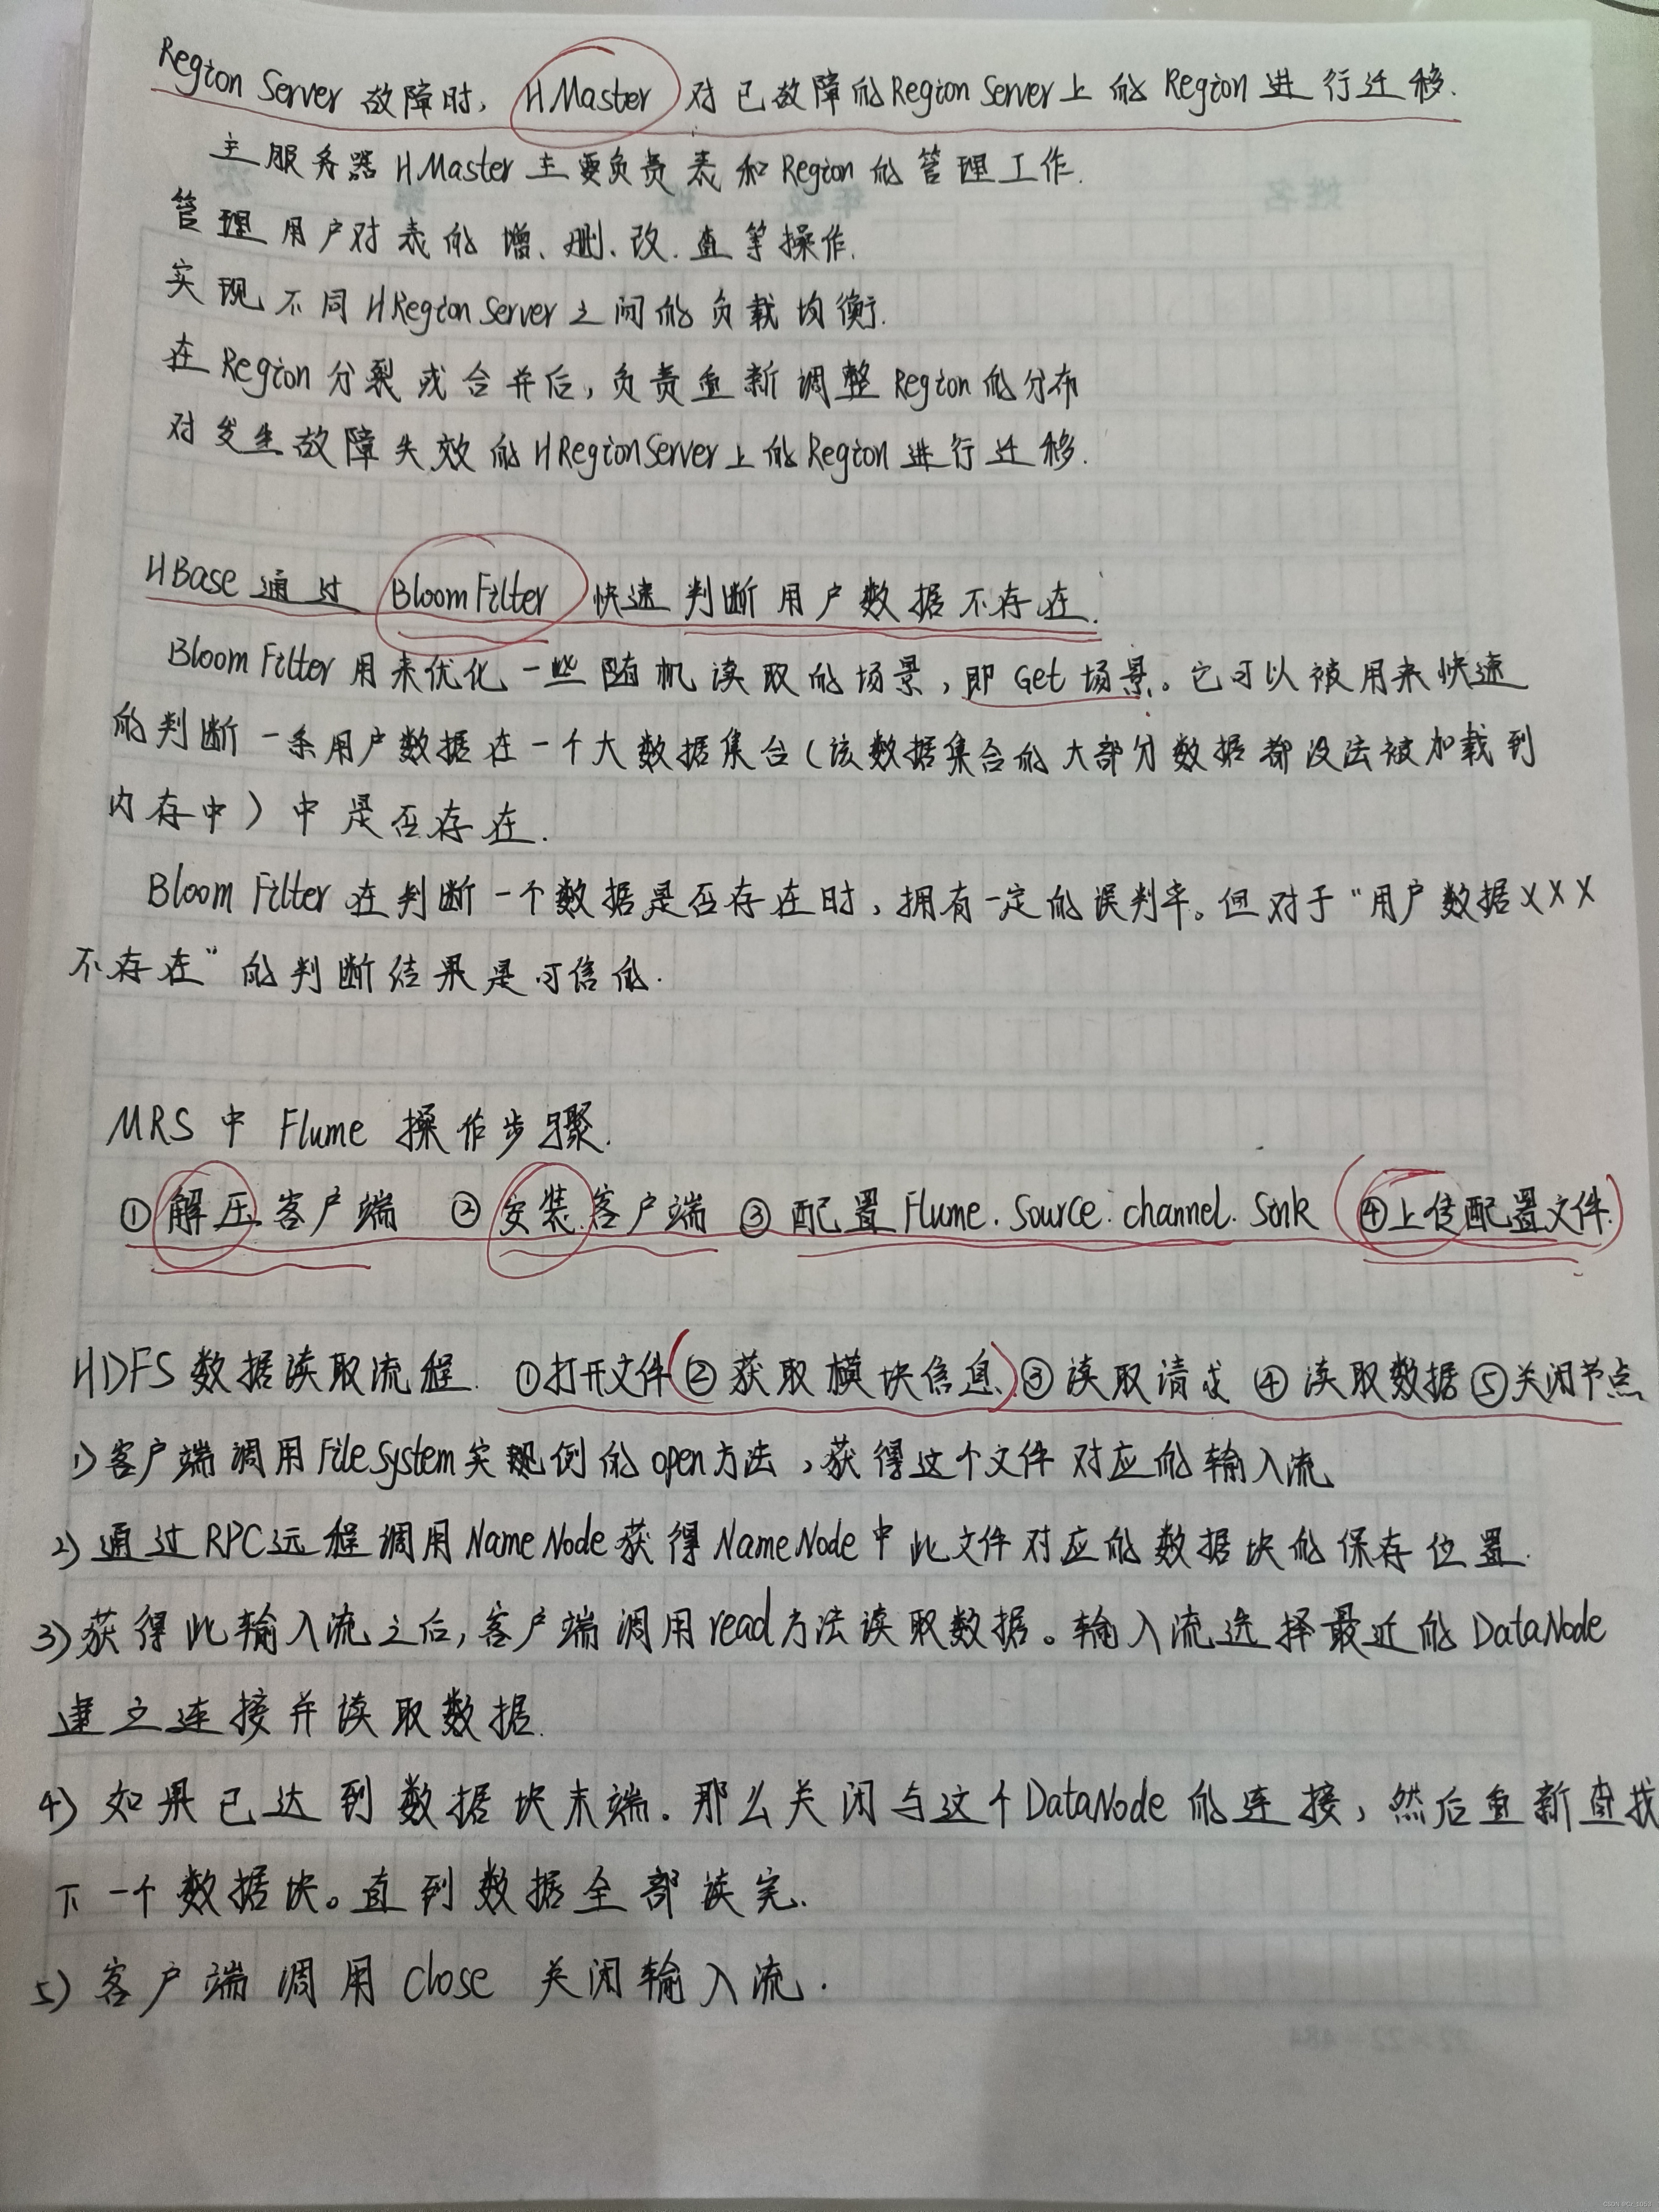 Region Server 故障时, HMaster 对已故障的Region Server上的 Region 进行迁移.
主服务器 HMaster 主要负责表和Region的管理工作.
管理用户对表的增、删、改、查等操作.
实现不同HRegion Server之间的负载均衡.
在Region分裂或合并后,负责重新调整Region的分布
对发生故障失效的HRegionServer上的Region进行迁移.
HBase通过 BloomFilter 快速判断用户数据不存在.
Bloom Filter用来优化一些随机读取的场景,即Get场景。它可以被用来快速
的判断一条用户数据在一个大数据集合(该数据集合的大部分数据都没法被加载到
内存中)中是否存在.
Bloom Filter在判断一个数据是否存在时,拥有一定的误判率。但对于“用户数据XXX
不存在”的判断结果是可信的.
MRS中 Flume 操作步骤.
①解压客户端 ②安装客户端 ③配置Flume.Source.channel.Sink ④上传配置文件.
HDFS数据读取流程. ①打开文件(②获取模块信息)③读取请求 ④读取数据⑤关闭节点
1)客户端调用FileSystem实例的open方法,获得这个文件对应的输入流
2)通过RPC远程调用NameNode获得NameNode中此文件对应的数据块的保存位置.
3)获得此输入流之后,客户端调用read方法读取数据。输入流选择最近的DataNode
建立连接并读取数据.
4)如果已达到数据块末端.那么关闭与这个DataNode的连接,然后重新查找
下一个数据块。直到数据全部读完.
5)客户端调用close 关闭输入流.